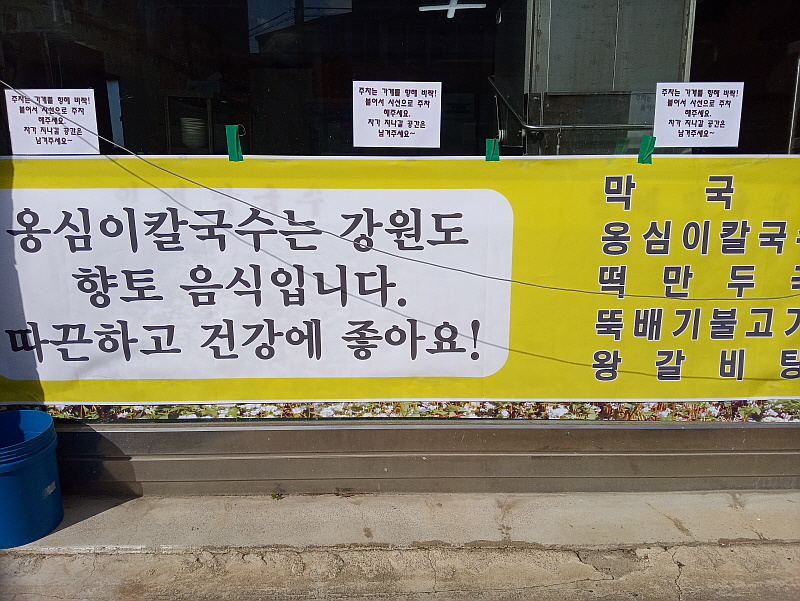 주차는 가게를 향해 바짝!
붙어서 사선으로 주차
해주세요.
차가 지나갈 공간은
남겨주세요~
주차는 가게를 향해 바짝!
붙어서 사선으로 주차
해주세요.
차가 지나갈 공간은
남겨주세요~
주차는 가게를 향해 바짝!
붙어서 사선으로 주차
해주세요.
차가 지나갈 공간은
남겨주세요~
옹심이칼국수는 강원도
향토 음식입니다.
따끈하고 건강에 좋아요!
막 국
옹심이칼국수
떡 만 두 국
뚝배기불고기
왕 갈 비 탕